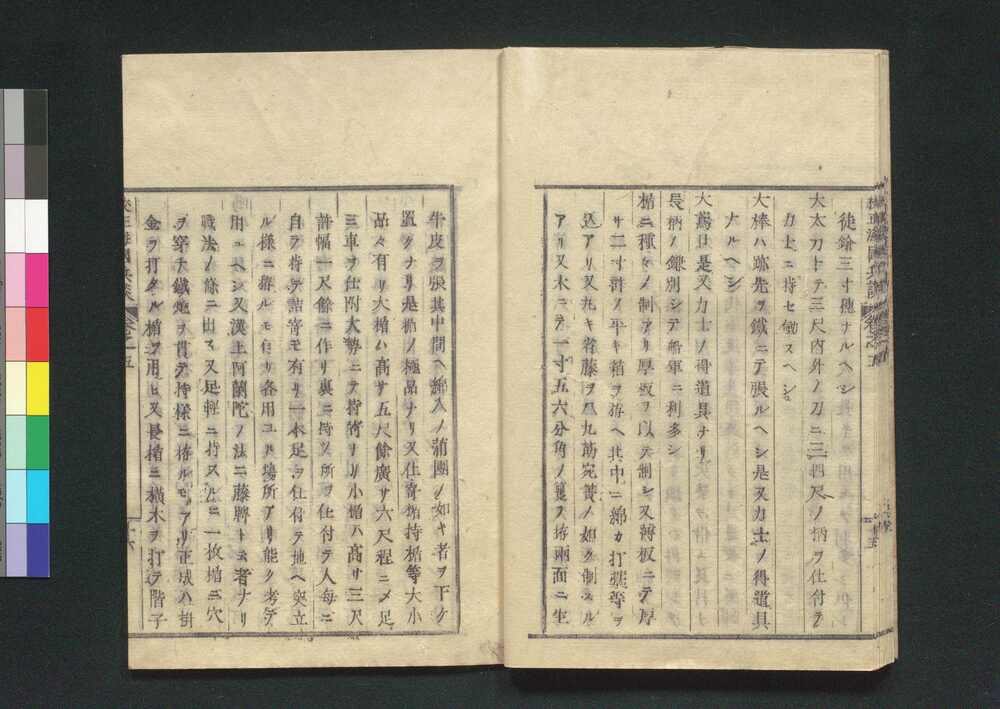 徒鎗三寸穗ナルヘシ
大太刀トテ三尺内外ノ刀ニ三四尺ノ柄ヲ仕付テ
力士ニ持セ働スヘシ
大棒ハ跡先ヲ鐵ニテ張ルヘシ是又力士ノ得道具
ナルヘシ
大鳶口是又力士ノ得道具ナリ
長柄ノ鎌別シテ船軍ニ利多シ
楯ニ種々ノ制アリ厚板ヲ以テ制シ又薄板ニテ厚
サ二寸許ノ平キ箱ヲ拵ヘ其中ニ綿カ打藁等ヲ
込アリ又丸キ省藤ヲ
九筋宛簀ノ如ク制スル
アリ又木ニテ一寸五六分角ノ
ヲ拵兩面ニ生
牛皮ヲ張其中間ヘ綿入ノ蒲團ノ如キ者ヲ下ケ
置クナリ是楯ノ極品ナリ又仕寄楯持楯等大小
品々有リ大楯ハ高サ五尺餘廣サ六尺程ニメ足
三車ヲ仕附大勢ニテ持寄ナリ小楯ハ高サ三尺
許幅一尺餘ニ作リ裏ニ持ツ所ヲ仕付テ人毎ニ
自ラ持テ詰寄モ有リ一本足ヲ仕付テ地ヘ突立
ル樣ニ拵ルモ有リ各用ユル場所アリ能ク考テ
用ユヘシ又漢土阿蘭陀ノ法ニ藤牌トス者ナリ
戰法ノ條ニ出ス又足輕ニ持スルニ一枚楯ニ穴
ヲ穿チ鐵炮ヲ貫テ持樣ニ拵ルモアリ正成ハ掛
金ヲ打タル楯ヲ用ヒ又長楯ニ横木ヲ打テ階子
卷之五
十六